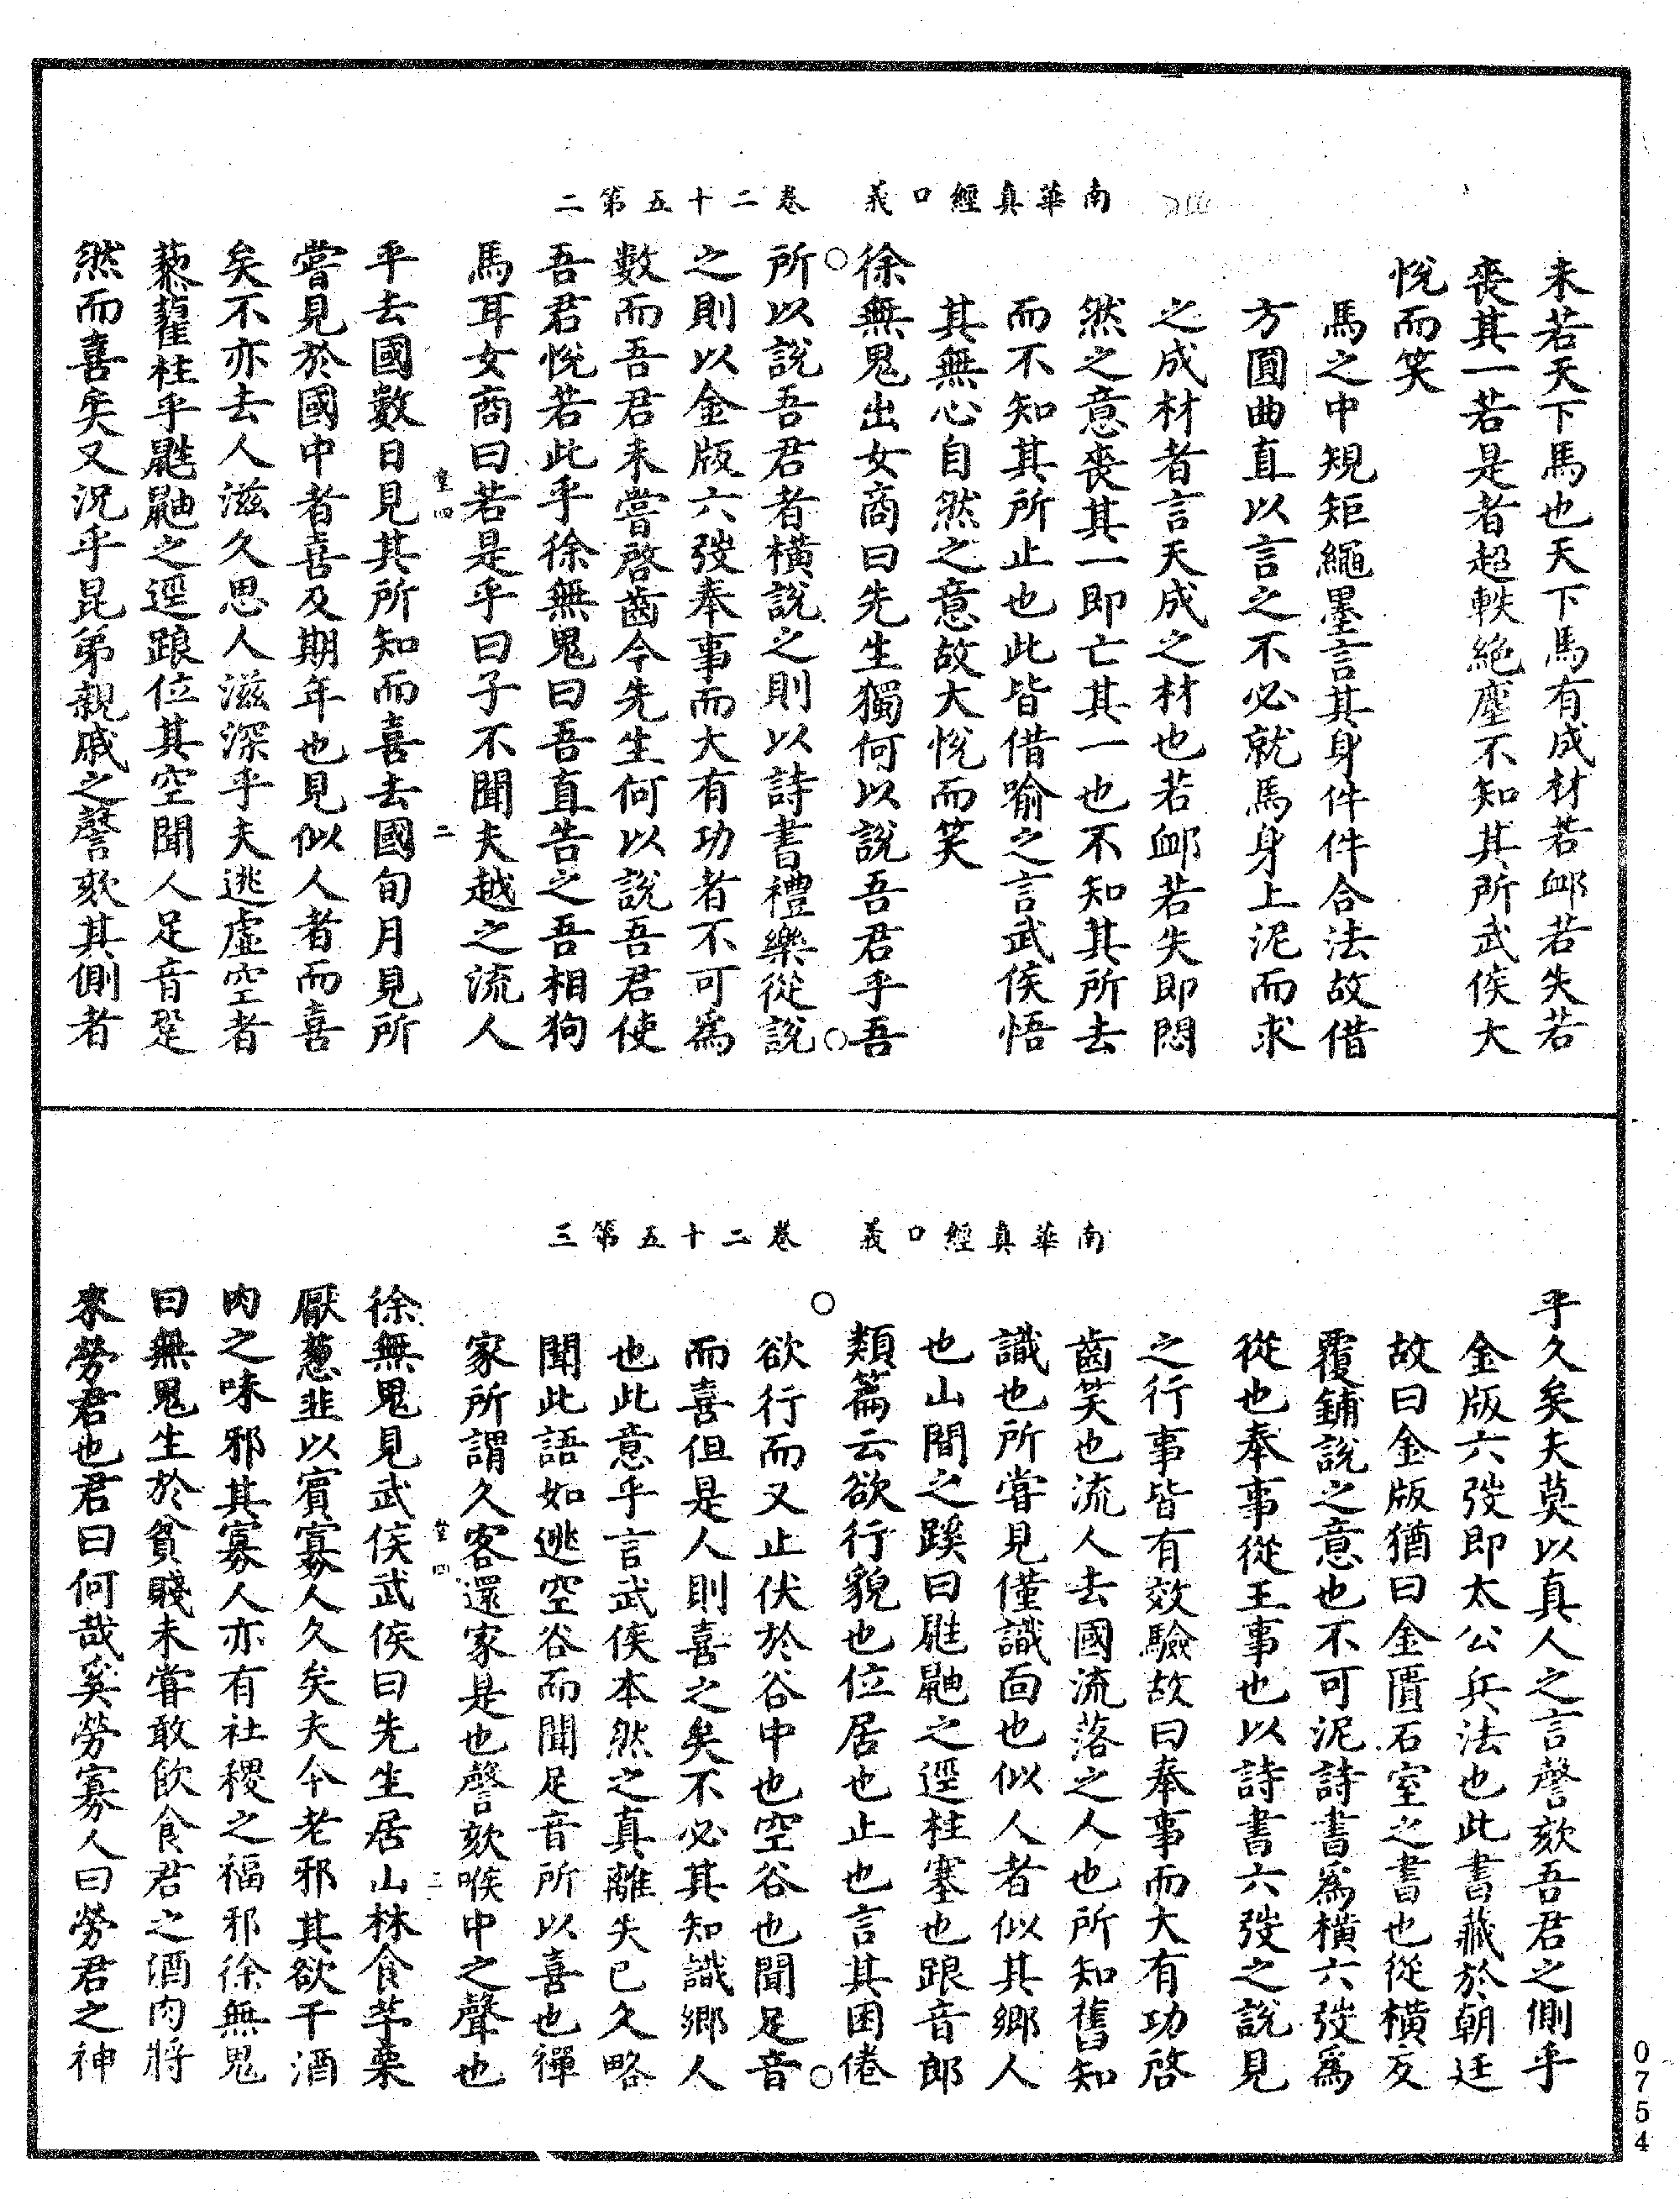 南華真經口義　卷二十五第二
未若天下馬也天下馬有成材若䘏若失若
喪其一若是者超軼絶塵不知其所武侯大
悅而笑
馬之中規矩繩墨言其身件件合法故借
方圓曲直以言之不必就馬身上泥而求
之成材者言天成之材也若䘏若失即悶
然之意喪其一即亡其一也不知其所去
而不知其所止也此皆借喻之言武侯悟
其無心自然之意故大悅而笑
徐無鬼出女商曰先生獨何以說吾君乎吾
所以說吾君者橫說之則以詩書禮樂從說
之則以金版六弢奉事而大有功者不可爲
數而吾君未嘗啓齒今先生何以說吾君使
吾君悅若此乎徐無鬼曰吾直告之吾相狗
馬耳女商曰若是乎曰子不聞夫越之流人
乎去國數日見其所知而喜去國旬月見所
嘗見於國中者喜及期年也見似人者而喜
矣不亦去人滋久思人滋深乎夫逃虛空者
藜藿柱乎鼪鼬之逕踉位其空聞人足音跫
然而喜矣又況乎昆弟親戚之謦欬其側者
二
南華真經口義　卷二十五第三
乎久矣夫莫以真人之言謦欬吾君之側乎
金版六弢即太公兵法也此書藏於朝廷
故曰金版猶曰金匱石室之書也從橫反
覆鋪說之意也不可泥詩書爲橫六弢爲
從也奉事從王事也以詩書六弢之說見
之行事皆有效驗故曰奉事而大有功啓
齒笑也流人去國流落之人也所知舊知
識也所嘗見僅識面也似人者似其鄉人
也山間之蹊曰鼪鼬之逕柱塞也踉音郎
類篇云欲行貌也位居也止也言其困倦
欲行而又止伏於谷中也空谷也聞足音
而喜但是人則喜之矣不必其知識鄉人
也此意乎言武侯本然之真離失已久略
聞此語如逃空谷而聞足音所以喜也禪
家所謂久客還家是也謦欬喉中之聲也
徐無鬼見武侯武侯曰先生居山林食芧栗
厭葱韭以賓寡人久矣夫今老邪其欲干酒
肉之味邪其寡人亦有社稷之福邪徐無鬼
曰無鬼生於貧賤未嘗敢飲食君之酒肉將
來勞君也君曰何哉奚勞寡人曰勞君之神
三
0754